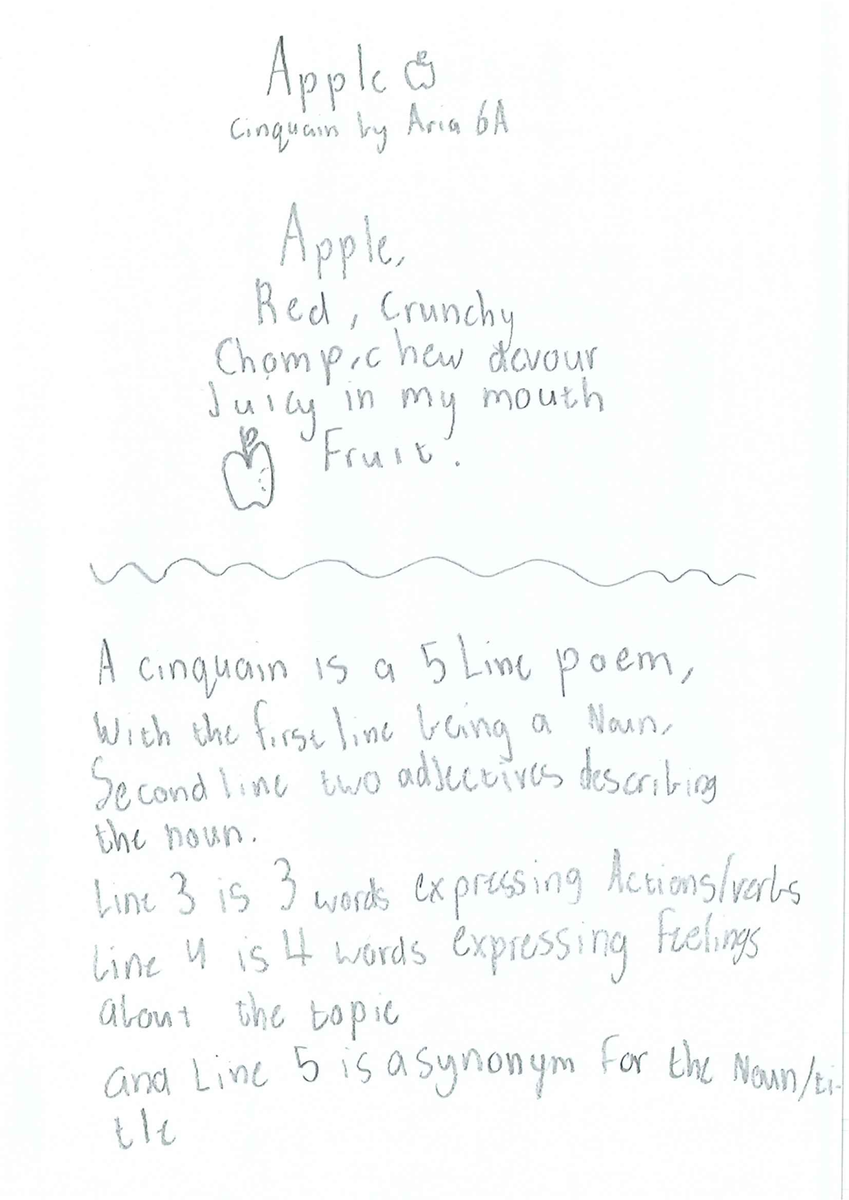 Apple
Cinquain by Aria 6A
Apple,
Red, Crunchy
Chomp,chew devour
Juicy in my mouth
Fruit.
A cinquain is a 5 Line poem,
With the first line being a Noun,
Second line two adjectives describing
the noun.
Line 3 is 3 words expressing Actions/verbs
Line 4 is 4 words expressing Feelings
about the topic
and Line 5 is a synonym for the Noun/ti-
tle